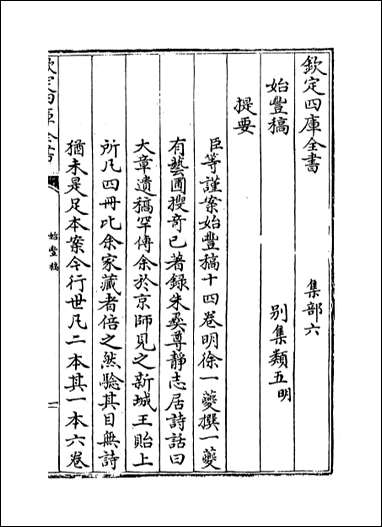 欽定四庫全書　集部六
始豐稿　別集類五明
提要
臣等謹案始豐稿十四卷明徐一夔撰一夔
有藝圃搜奇已著錄朱彝尊靜志居詩話曰
大章遺稿罕傳余於京師見之新城王貽上
所凡四冊比余家藏者倍之然驗其目無詩
猶未是足本案今行世凡二本其一本六卷
欽定四庫全書
始豐稿
一